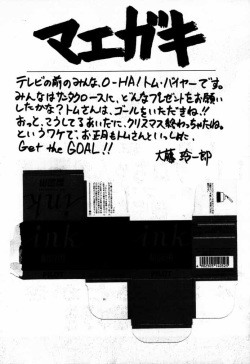 マエガキ
テレビの前のみんな、O-HA! トム・バイヤーです。
みんなはサンタクロースに、どんなプレゼントをお願い
したかな? トムさんは、ゴールをいただきね!!
おっと、こうしてるあいだに、クリスマス終わっちゃたね。
というワケで、お正月もトムさんといっしょに、
Get the GOAL!!
大藤 玲一郎
ink
ink